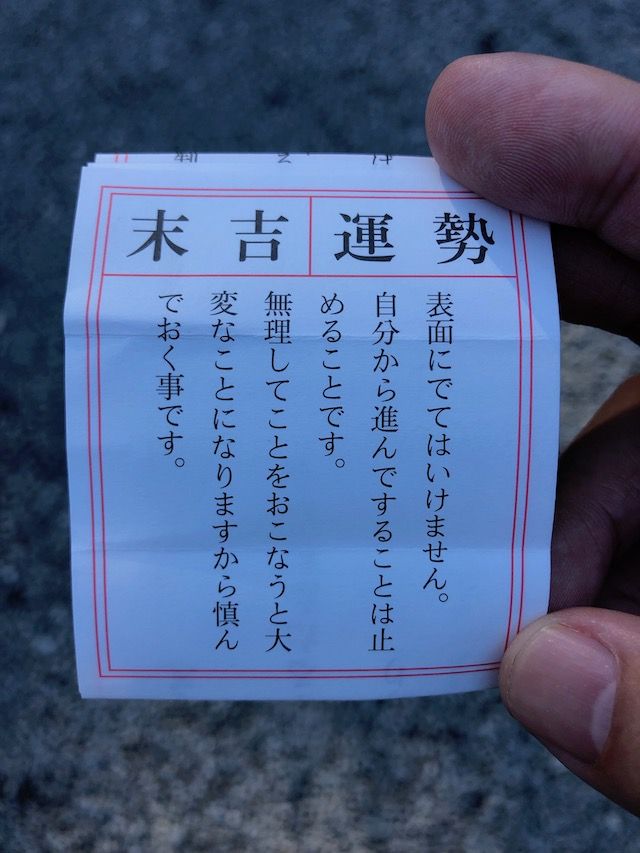 運勢
末吉
表面にでてはいけません。
自分から進んですることは止
めることです。
無理してことをおこなうと大
変なことになりますから慎ん
でおく事です。